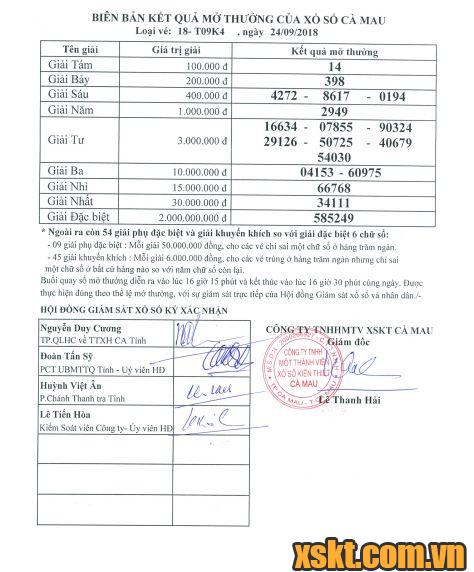 BIÊN BẢN KẾT QUẢ MỞ THƯỞNG CỦA XỔ SỐ CÀ MAU
Loại vé: 18- T09K4 , ngày 24/09/2018
Tên giải Giá trị giải Kết quả mở thưởng
Giải Tám 100.000 đ 14
Giải Bảy 200.000 đ 398
Giải Sáu 400.000 đ 4272 - 8617 - 0194
Giải Năm 1.000.000 đ 2949
Giải Tư 3.000.000 đ 16634 - 07855 - 90324
29126 - 50725 - 40679
54030
Giải Ba 10.000.000 đ 04153 - 60975
Giải Nhì 15.000.000 đ 66768
Giải Nhất 30.000.000 đ 34111
Giải Đặc biệt 2.000.000.000 đ 585249
* Ngoài ra còn 54 giải phụ đặc biệt và giải khuyến khích so với giải đặc biệt 6 chữ số:
- 09 giải phụ đặc biệt : Mỗi giải 50.000.000 đồng, cho các vé chỉ sai một chữ số ở hàng trăm ngàn.
- 45 giải khuyến khích : Mỗi giải 6.000.000 đồng, cho các vé trúng ở hàng trăm ngàn nhưng chỉ sai
một chữ số ở bất cứ hàng nào so với năm chữ số còn lại.
Buổi quay số mở thưởng diễn ra vào lúc 16 giờ 15 phút và kết thúc vào lúc 16 giờ 30 phút cùng ngày. Được
thực hiện đúng theo thể lệ mở thưởng, với sự giám sát trực tiếp của Hội đồng Giám sát xổ số và nhân dân./-
HỘI ĐỒNG GIÁM SÁT XỔ SỐ KÝ XÁC NHẬN
Nguyễn Duy Cương
TP.QLHC về TTXH CA Tỉnh
Đoàn Tấn Sỹ
PCT.UBMTTQ Tỉnh - Uỷ viên HĐ
Huỳnh Việt Ân
P.Chánh Thanh tra Tỉnh
Lê Tiến Hòa
Kiểm Soát viên Công ty- Ủy viên HĐ
CÔNG TY TNHHMTV XSKT CÀ MAU
Giám đốc
CÔNG TY TNHH
MỘT THÀNH VIÊN
XỔ SỐ KIẾN THIẾT
CÀ MAU
TP CÀ MAU - T. CÀ MAU
Lê Thanh Hải
xskt.com.vn